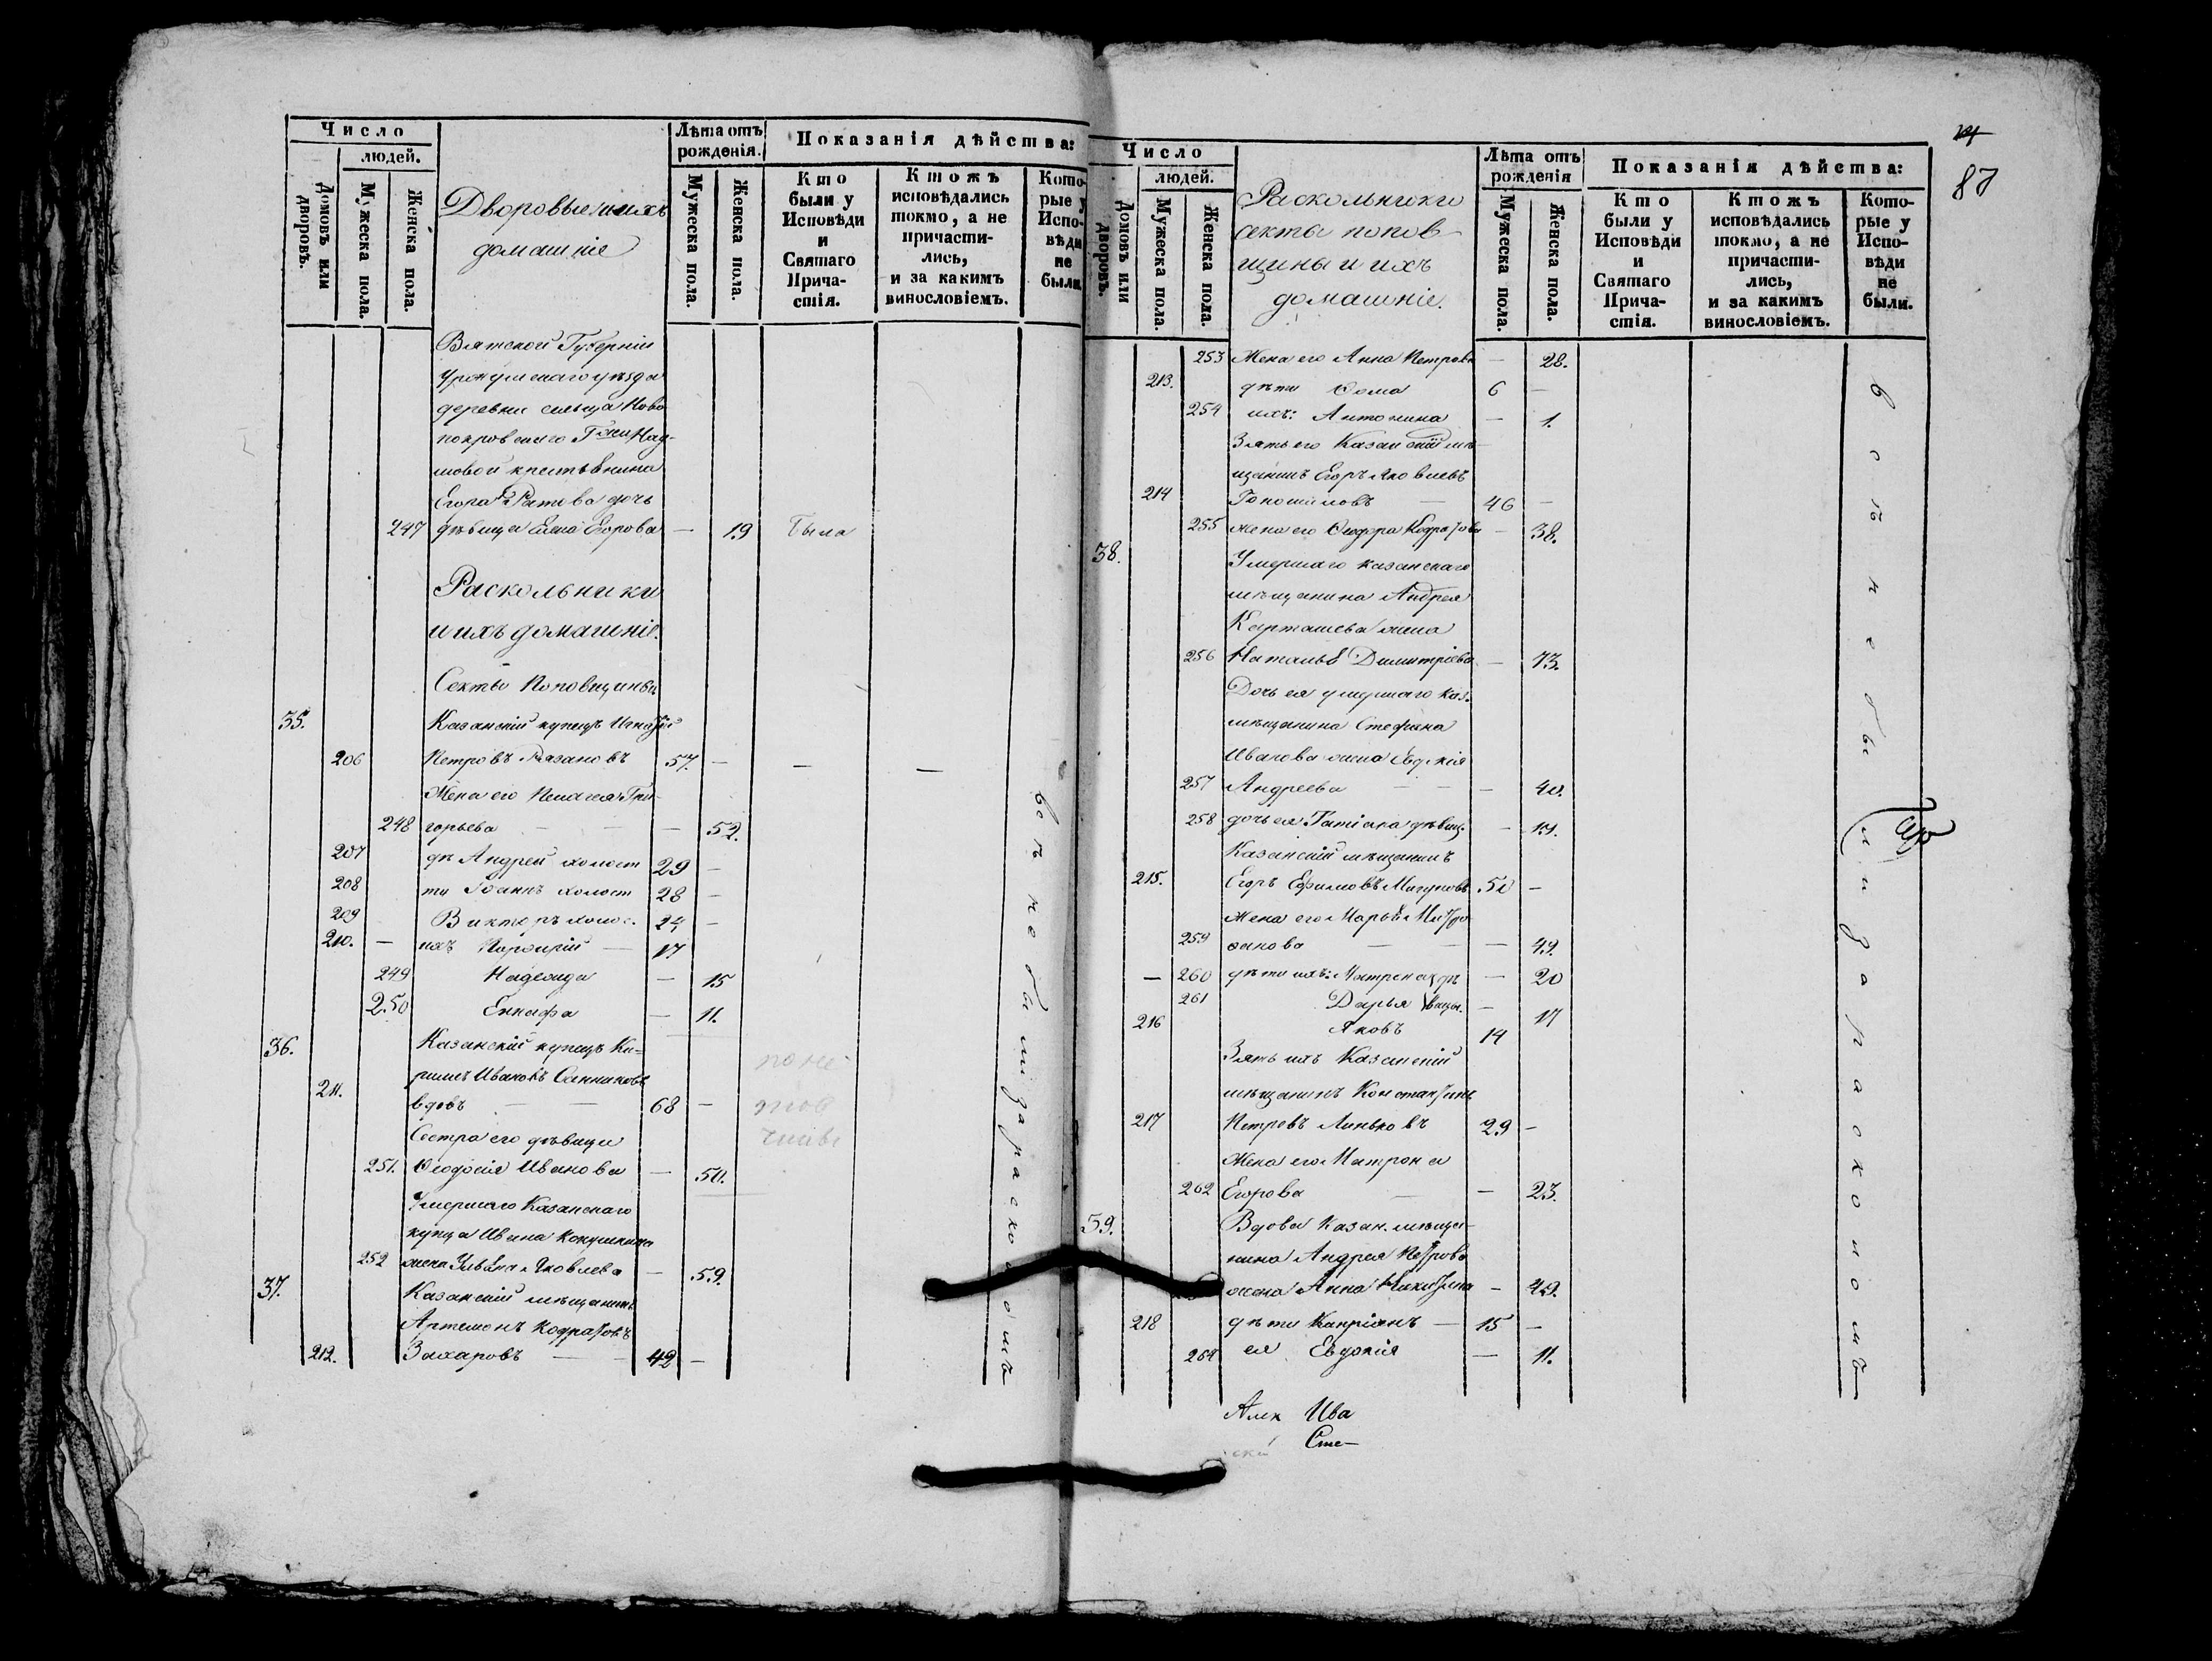 Число
людей.
Домовъ или дворовъ.
Мужеска пола.
Женска пола.
Дворовые и ихъ
домашніе
Лѣта отъ
рожденія.
Мужеска пола.
Женска пола.
Показанія дѣйства:
Кто
были у
Исповѣди
и
Святаго
Прича-
стія.
Ктожъ
исповѣдались
токмо, а не
причасти-
лись,
и за какимъ
винословіемъ.
Кото-
рые у
Испо-
вѣди
не
были.
Вятской Губерніи
Уржумскаго уѣзда
деревни сельца Ново
покровскаго
крестьянина
Егора дочь
247 дѣвица Егорова — 19 была
Раскольники
и ихъ домашніе.
Секты Поповщины
35. Казанскій купецъ Игнатій
206 Петровъ Рязановъ 57. — — —
Жена его Пелагея Гри-
248 горьева — — — 52.
207 дѣ Андрей холост 29 —
208 ти Іоаннъ холост 28 —
209 Викторъ холос. 24 —
210. — ихъ Порфирій — 17
249 Надежда — 15
250 — 11.
36. Казанскій купецъ Ки-
211. Ивановъ Санниковъ
вдовъ — — 68 —
Сестра его дѣвица
251. Ѳеодосія Иванова — 50.
Умершаго Казанскаго
купца Ивана
252 жена Ульяна Яковлева — 59.
37. Казанскій мѣщанинъ
Артемонъ Кодратовъ
212. Захаровъ — — 42 —
все не были за расколомъ
87
Число
людей.
Домовъ или дворовъ.
Мужеска пола.
Женска пола.
Раскольники
секты попов-
щины и ихъ
домашніе.
Лѣта отъ
рожденія
Мужеска пола.
Женска пола.
Показанія дѣйства:
Кто
были у
Исповѣди
и
Святаго
Прича-
стія.
Ктожъ
исповѣдались
токмо, а не
причасти-
лись,
и за какимъ
винословіемъ.
Кото-
рые у
Испо-
вѣди
не
были.
253 Жена его Анна Петрова — 28.
213. дѣти Ѳома 6 —
254 ихъ: Антонина — 1.
Зять его Казанскій мѣ-
щанинъ Егоръ Яковлевъ
214 — 46 —
255 жена его Кодратова — 38.
38. Умершаго казанскаго
мѣщанина Андрея
Карташева жена
256 Наталья Димитріева — 73.
Дочь ея умершаго каз.
мѣщанина Стефана
Иванова жена Евдокія
257 Андреева — — — 40.
258 дочь ея Татіана дѣвиц. —
Казанскій мѣщанинъ
215. Егоръ Ефимовъ 50 —
Жена его Марья Митро
259 фанова — — — 49.
— 260 дѣти ихъ: Матрена дѣ — 20
261 Дарья вицы. — 17
216 Яковъ 14
Зять ихъ Казанскій
мѣщанинъ Константинъ
217 Петровъ Линьковъ 29 —
Жена его Матрона
262 Егорова — — 23.
39. Вдова Казан. мѣща-
нина Андрея Петрова
жена Анна Никитина — 49.
218 дѣти Кипріянъ — 15 —
264 ея Евдокія — 11.
всѣ не были за расколомъ
Алек Ива
Сте-